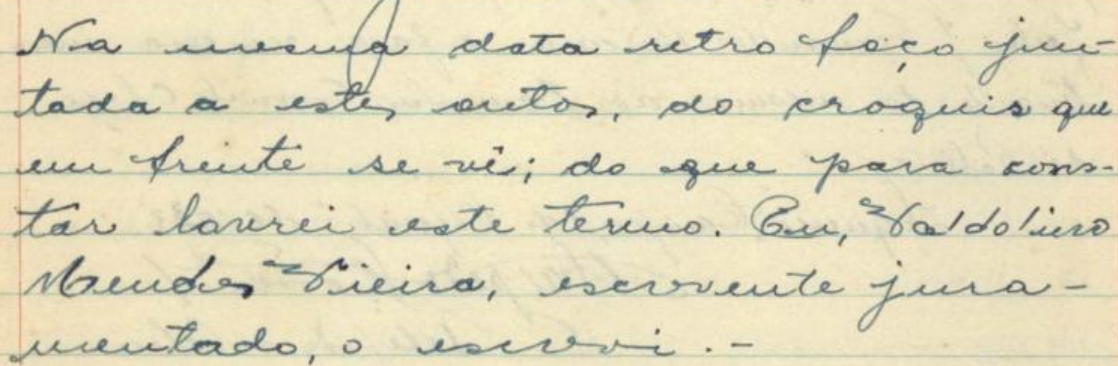 Na mesma data retro faço jun-
tada a estes autos, do croquis que
em frente se vê; do que para cons-
tar lavrei este termo. Eu, Valdolino
Mendes Vieira, escrevente jura-
mentado, o escrevi.-